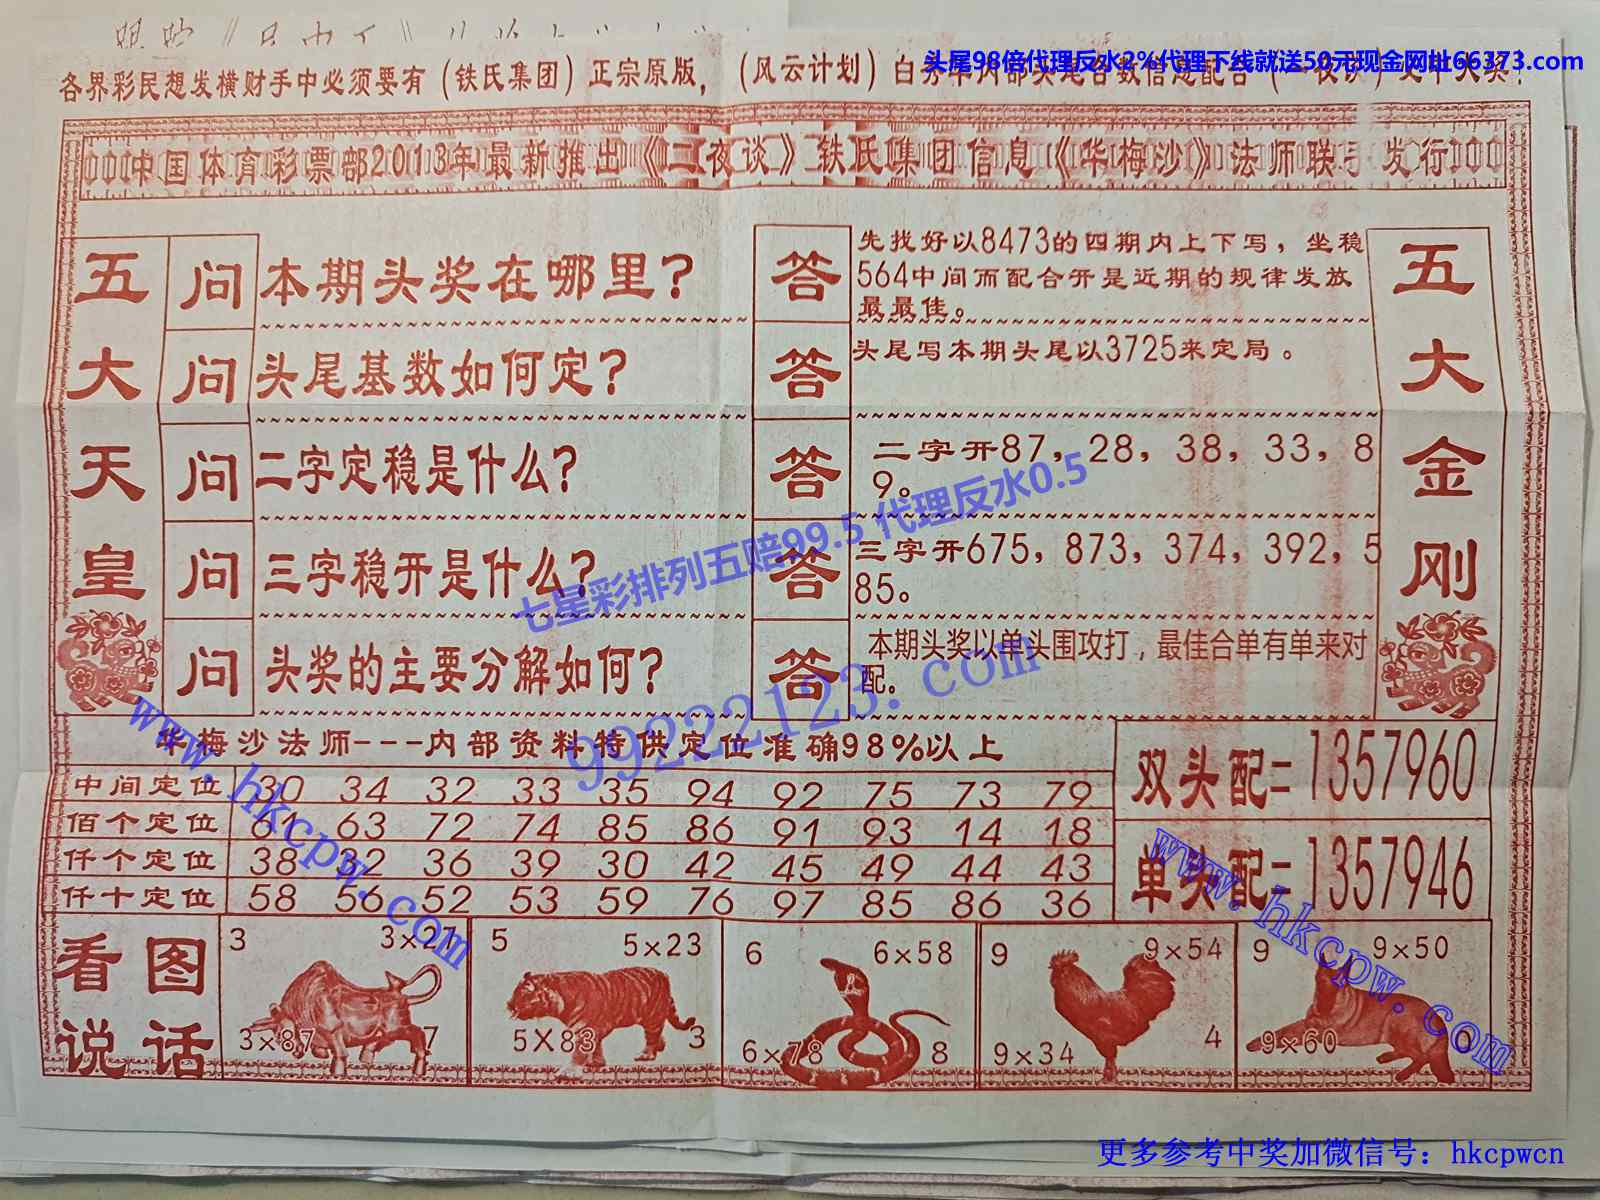 头尾98倍代理反水2%代理下线就送50元现金网址66373.com
各界彩民想发横财手中必须要有（铁氏集团）正宗原版，（风云计划）白
中国体育彩票部2013年最新推出《二夜谈》铁氏集团信息《华梅沙》法师联手发行
五大天皇
问 本期头奖在哪里？
答 先找好以8473的四期内上下写，坐稳
564中间而配合开是近期的规律发放
最最佳。
问 头尾基数如何定？
答 头尾写本期头尾以3725来定局。
问 二字定稳是什么？
答 二字开87，28，38，33，8
9。
问 三字稳开是什么？
答 三字开675，873，374，392，5
85。
问 头奖的主要分解如何？
答 本期头奖以单头围攻打，最佳合单有单来对
配。
五大金刚
七星彩排列五赔99.5 代理反水0.5
99222123.com
www.hkcpw.com
华梅沙法师---内部资料特供定位准确98%以上
中间定位 30 34 32 33 35 94 92 75 73 79
佰个定位 61 63 72 74 85 86 91 93 14 18
仟个定位 38 32 36 39 30 42 45 49 44 43
仟十定位 58 56 52 53 59 76 97 85 86 36
双头配=1357960
单头配=1357946
www.hkcpw.com
看图
说话
3 3×21
3×87 7
5 5×23
5X83 3
6 6×58
6×78 8
9 9×54
9×34 4
9 9×50
9×60 0
更多参考中奖加微信号：hkcpwcn